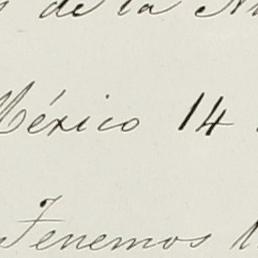 de la
México 14
Tenemos